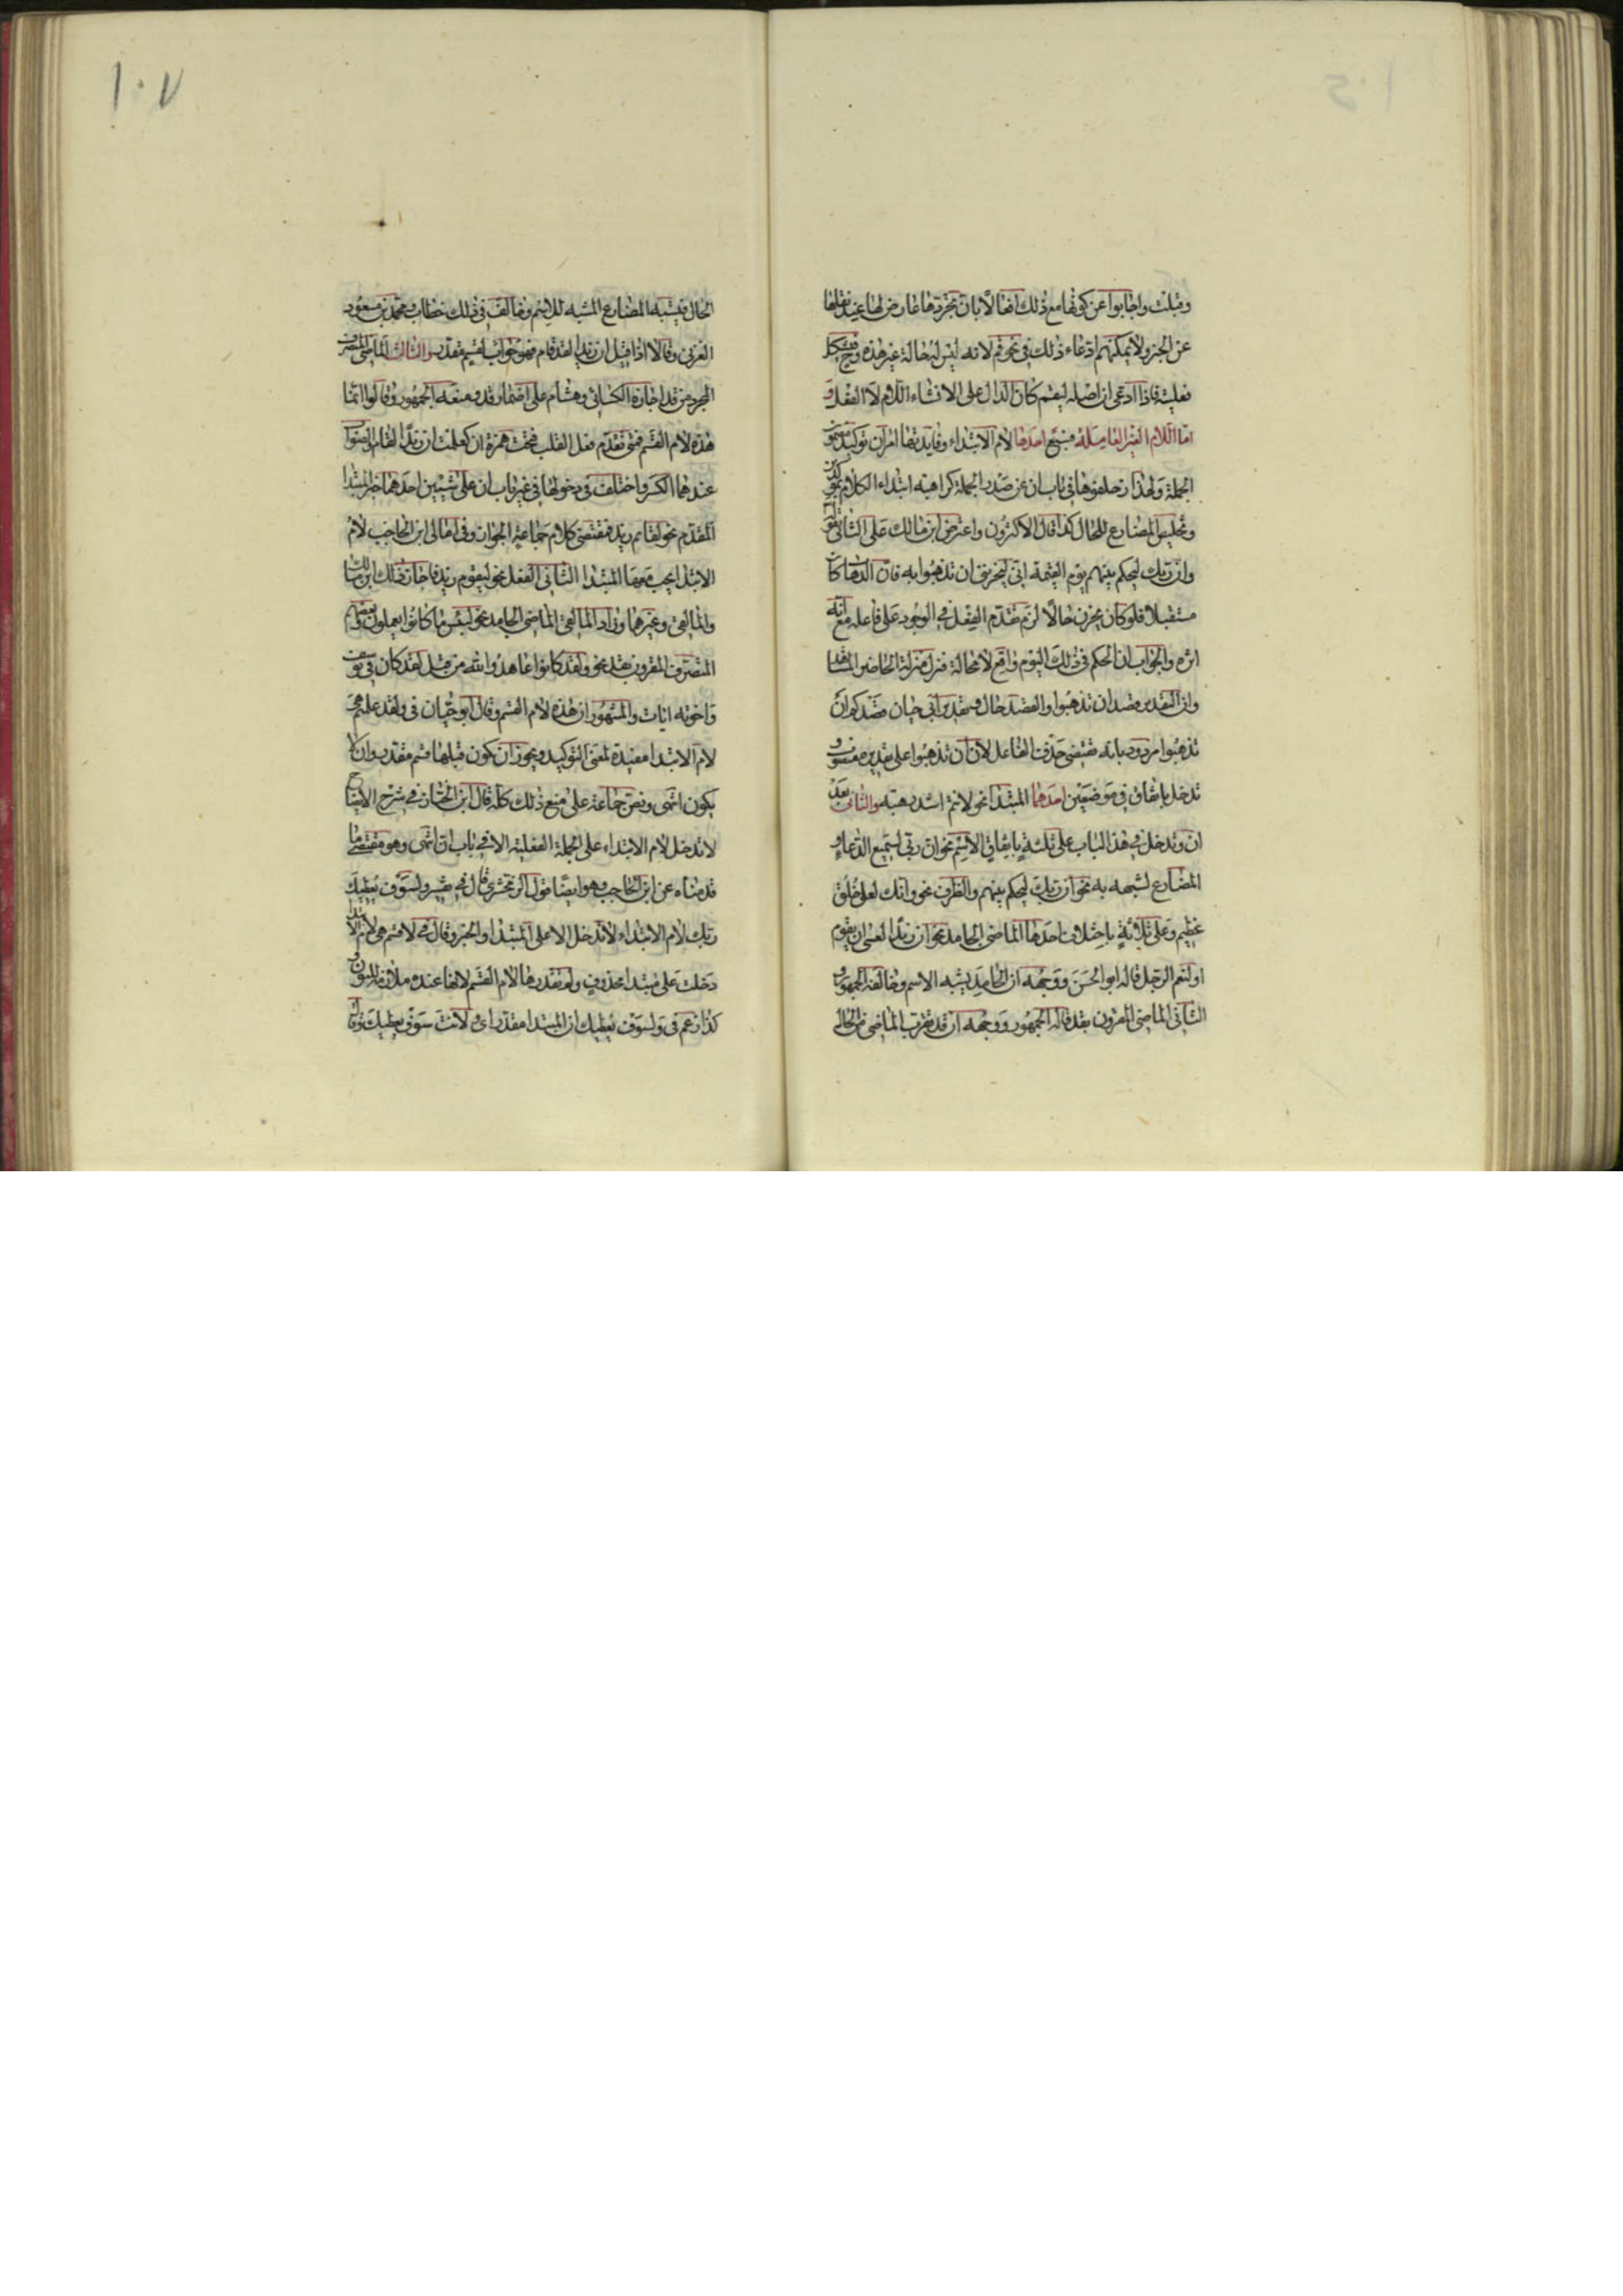 وقبلت واجابوا عن كونها مع ذلك افعالا بان تجردها عارض لها عند نقلها
عن الخبر ولا يمكنهم ادعاء ذلك في نحو قم لانه ليس له حالة غير هذه وح فتشكل
فعليته فاذا ادعى ان اصله لتقم كان الدال على الانشاء اللام لا الفعل و
اما اللام الغير العاملة فسبع احدها لام الابتداء وفايدتها امران توكيد مضمون
الجملة ولهذا زحلقوها في باب ان عن صدر الجملة كراهية ابتداء الكلام بمؤكدين
وتخليص المضارع للحال كذا قال الاكثرون واعترض ابن مالك على الثاني بقوله
وان ربك ليحكم بينهم يوم القيمة اني ليحزنني ان تذهبوا به فان الذهاب كان
مستقبلا فلو كان يحزن حالا لزم تقدم الفعل في الوجود على فاعله مع انه
اثره والجواب ان الحكم في ذلك اليوم واقع لا محالة فنزل منزلة الحاضر المشاهد
وان التقدير قصد ان تذهبوا والقصد حال وتقدير ابي حيان قصدكم ان
تذهبوا مردود بانه يقتضي حذف الفاعل لان ان تذهبوا على تقديره منصوب و
تدخل باتفاق في موضعين احدهما المبتدا نحو لانتم اشد رهبة والثاني بعد
ان وتدخل في هذا الباب على ثلثة باتفاق الاسم نحو ان ربي لسميع الدعاء و
المضارع لشبهه به نحو ان ربك ليحكم بينهم والظرف نحو وانك لعلى خلق
عظيم وعلى ثلاثة باختلاف احدها الماضي الجامد نحو ان زيدا لعسى ان يقوم
او لنعم الرجل قاله ابو الحسن ووجهه ان الجامد يشبه الاسم وخالفه الجمهور و
الثاني الماضي المقرون بقد قاله الجمهور ووجهه ان قد تقرب الماضي من الحال
الحال فيشبه المضارع المشبه للاسم وخالف في ذلك خطاب ومحمد بن مسعود
الغزني وقالا اذا قيل ان زيدا لقد قام فهو جواب لقسم مقدر والثالث الماضي المتصرف
المجرد من قد اجازه الكسائي وهشام على اضمار قد ومنعه الجمهور وقالوا انما
هذه لام القسم فمتى تقدم فعل القلب فتحت همزة ان كعلمت ان زيدا لقام والصواب
عندهما الكسر واختلف في دخولها في غير باب ان على شيئين احدهما خبر المبتدا
المقدم نحو لقائم زيد فمقتضى كلام جماعة الجواز وفي امالى ابن الحاجب لام
الابتدا يجب معها المبتدا الثاني الفعل نحو ليقوم زيد فاجاز ذلك ابن مالك
والمالقي وغيرهما وزاد المالقي الماضي الجامد نحو لبئس ما كانوا يعملون وبعضهم
المتصرف المقرون بقد نحو ولقد كانوا عاهدوا الله من قبل لقد كان في يوسف
واخوته ايات والمشهور ان هذه لام القسم وقال ابو حيان في ولقد علمتم هي
لام الابتدا مفيدة لمعنى التوكيد ويجوز ان يكون قبلها قسم مقدر وان لا
يكون انتهى ونص جماعة على منع ذلك كله قال ابن الخباز في شرح الايضاح
لا تدخل لام الابتداء على الجملة الفعلية الا في باب ان انتهى وهو مقتضى ما
قدمناه عن ابن الحاجب وهو ايضا قول الزمخشري قال في تفسير ولسوف يعطيك
ربك لام الابتداء لا تدخل الا على المبتدا والخبر وقال في لا قسم هي لام الابتدا
دخلت على مبتدا محذوف ولم يقدرها لام القسم لانها عنده ملازمة للنون و
كذا زعم في ولسوف يعطيك ان المبتدا مقدر اى ولانت سوف يعطيك ربك
١٠٧